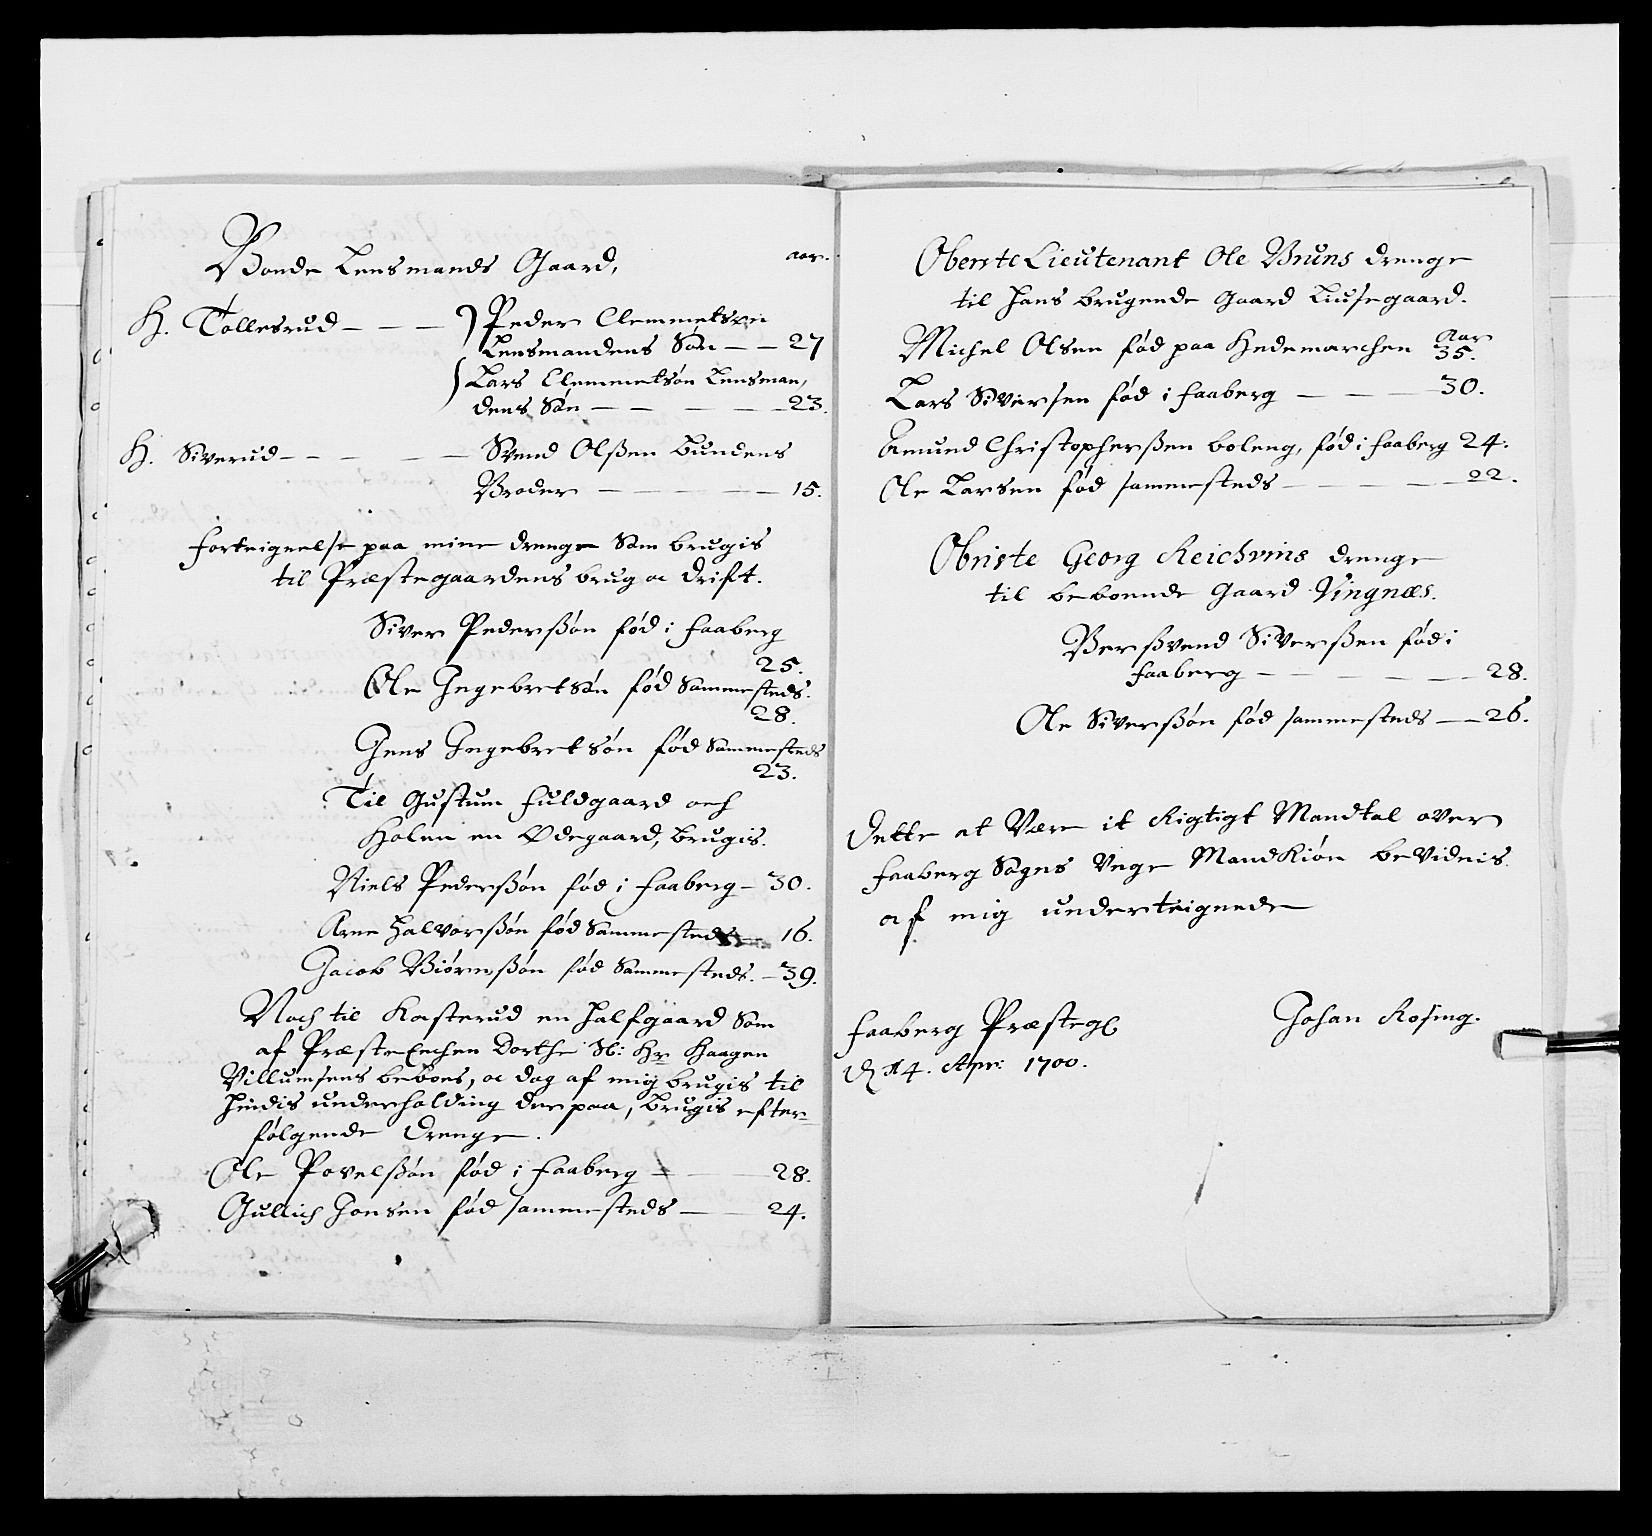 Bonde Lensmands Gaard, aar.
H. Tollesrud — — — Peder Clemmetsøn
Lensmandens Søn — — 27
Lars Clemmetsøn Lensman,
dens Søn — — — — — 23.
H. Siverud — — — — — Svend Olßen Bundens
Broder — — — — — 15.
Forteignelse paa mine drenge Som brugis
til Præstegaardens brug oc drift.
Siver Pederßøn fød i Faaberg
25.
Ole Ingebretsøn fød Sammesteds.
28.
Jens Ingebretsøn fød Sammesteds
23.
Til Gustum Fuldgaard och
Holen en Ødegaard, brugis.
Niels Pederßøn fød i Faaberg — 30.
Arne Halvorßøn fød Sammesteds — 16.
Jacob Biørnßøn fød Sammesteds. — 39.
Noch til Kasterud en Halfgaard Som
af Præste Enchen Dorthe Sl: Hr Haagen
Villumsens beboes, oc dog af mig brugis til
hindis underholding der paa, brugis efter-
følgende Drenge.
Ole Povelßøn fød i Faaberg — 28.
Gullich Jonsen fød sammesteds — 24.
Oberste Lieutenant Ole Bruns drenge
til hans brugende Gaard Liusegaard.
Michel Olsen fød paa Hedemarchen Aar 35.
Lars Siversen fød i Faaberg — — — 30.
Amund Christopherßen boleng, fød i Faaberg 24:
Ole Larsen fød sammesteds — — — — — 22.
Obriste Georg Reichvins drenge
til beboende Gaard Vingnæs.
Berßvend Siverßen fød i
Faaberg — — — — — — 28.
Ole Siverßøn fød sammesteds — — 26.
Dette at Være it Rigtigt Mandtal over
Faaberg Sogns Unge Mandkiøn bevidnis
af mig underteignede
Faaberg Præsteg: Johan Rosing.
d 14. Apr: 1700.